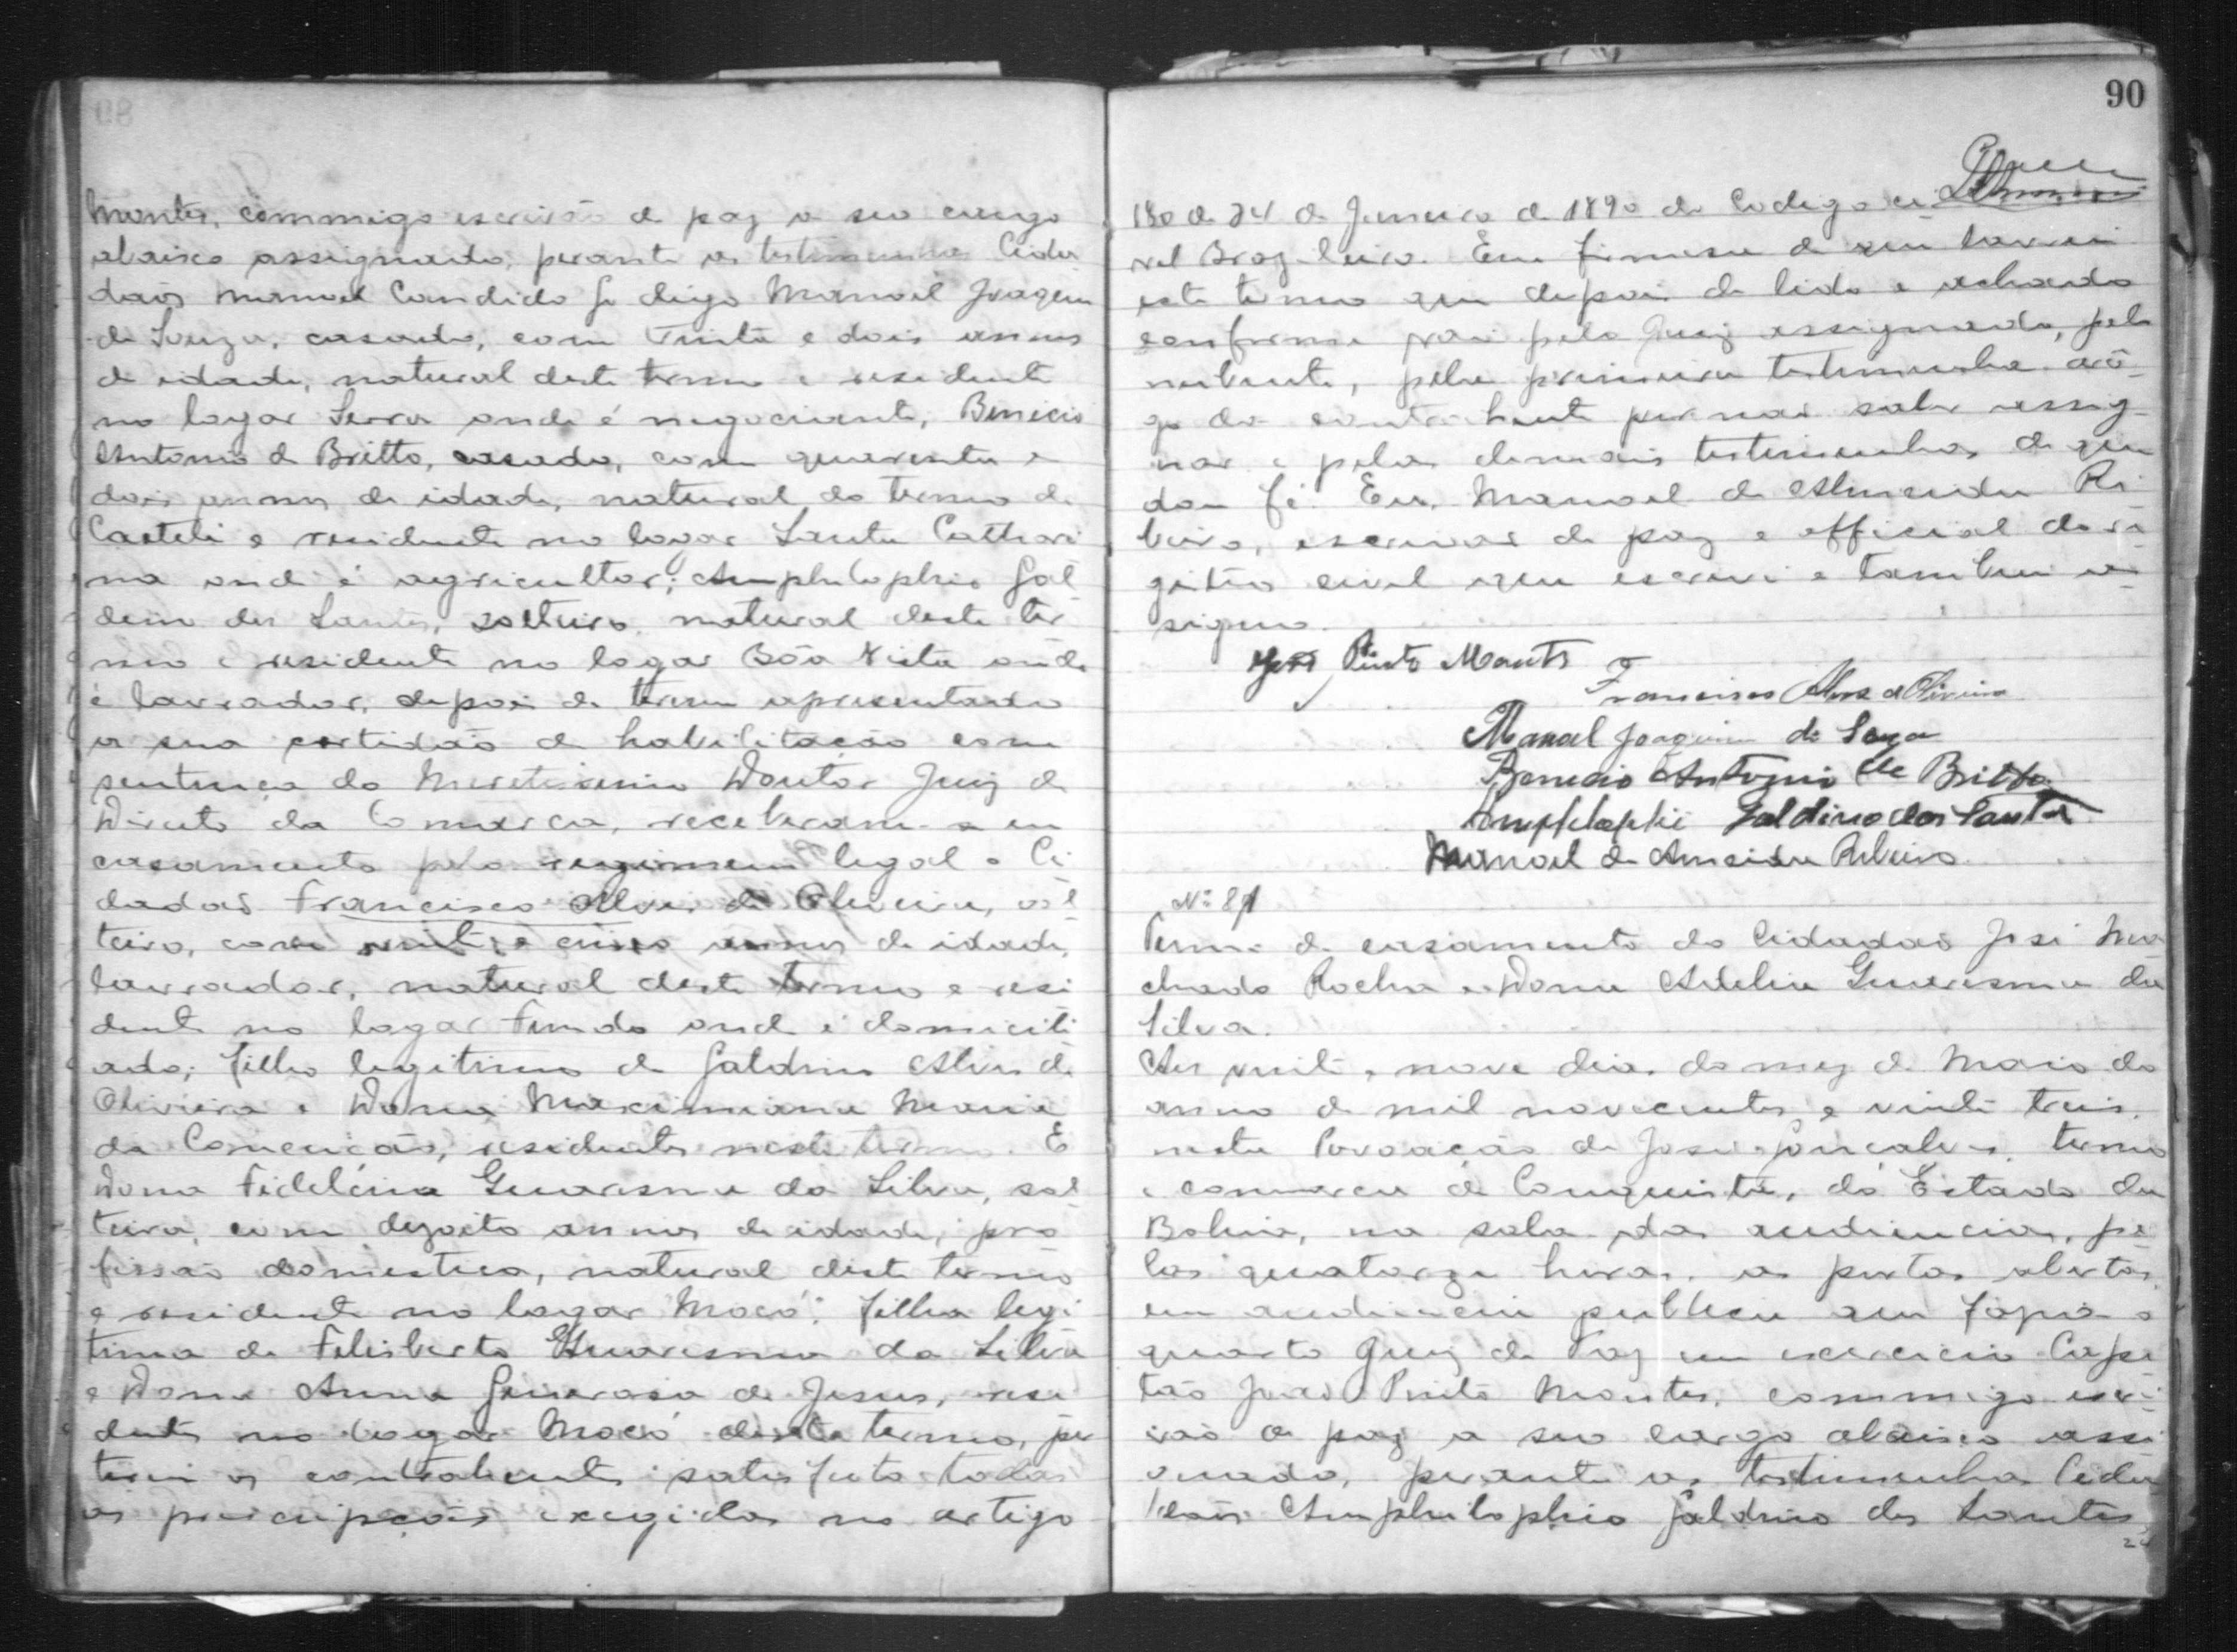 Montes, commigo escrivão de paz a seu cargo
abaixo assignado, perante as testimunhas Cida
dãos Manoel Candido G digo Manoel Joaqem
de Souza, casado, com Trinta e dois annos
de idade, natural deste termo e residente
no logar Serra onde é negociante, Benicio
Antonio de Britto, casado, com quarenta e
dois annos de idade, natural do termo de
Caeteté e residente no logar Santa Cathari
na onde é agricultor; Amphilophio Gal
dino dos Santos, solteiro natural deste ter
mo e residente no logar Bôa Vista onde
é lavrador, depois de terem apresentado
a sua certidão de habilitação com
sentença do Meretissimo Doutor Juiz de
Direito da Comarca, receberam-se em
casamento pelo regimem legal o Ci
dadão Francisco Alves de Oliveira, sol
teiro, com vinte e cinco annos de idade,
lavrador, natural deste termo e resi
dente no logar Fundo onde é domicili
ado; filho legitimo de Galdino Alves de
Oliveira e Dona Maximiana Maria
da Conceição, residentes neste termo. E
Dona Fidelcina Guaresma da Silva, sol
teira, com dezoito annos de idade, pro
fissão domestica, natural deste termo
e residente no logar Mocó: filha legi
tima de Felisberto Guaresma da Silva
e Dona Anna Generosa de Jesus, resi
dentes no logar Mocó deste termo, por
terem os contrahentes satisfeito todas
as exegidas no artigo
90
180 de 24 de Janeiro de 1890 do Codigo ci
vel Brazileiro. Em firmesa de que lavrei
este termo que depois de lido e achado
conforme vai pelo Juiz assignado, pelo
nubente, pela primeira testimunha arô
go da contrahente por não saber assig
nar e pelas demais testimunhas de que
dou fé. Eu, Manoel de Almeida Ri
beiro, escrivão de paz e official do re
gistro civel que escrevi e tambem as
signo.
José Pinto Montes
Francisco Alves de Oliveira
Manoel Joaquim de Souza
Benicio Antonio de Britto
Amphilophio Galdino dos Santos
Manoel de Almeida Ribeiro
Nº 81
Termo de casamento do Cidadão José Ma
chado Rocha e Dona Adelia Guaresma da
Silva.
Aos vinte e nove dias do mez de Maio do
anno de mil novecentos e vinte treis,
nesta Povoação de José Gonçalves, termo
e comarca de Conquista, do Estado da
Bahia, na sala das audiencias, pe
las quatorze horas, as portas abertas,
em audiencia publica que fazia o
quarto Juiz de Paz em exercicio Capi
tão José Pinto Montes, commigo escri
vão de paz a seu cargo abaixo assi
gnado, perante as testimunhas Cida
dãos Amphilophio Galdino dos Santos